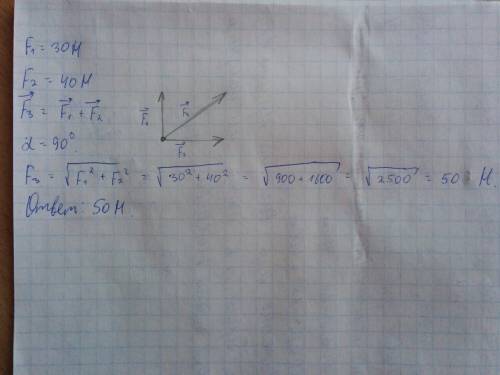 F₁ = 30 Н
F₂ = 40 Н
F⃗₃ = F⃗₁ + F⃗₂
α = 90°.
F₃ = √(F₁² + F₂²) = √(30² + 40²) = √(900 + 1600) = √2500 = 50 Н.
Ответ: 50 Н.